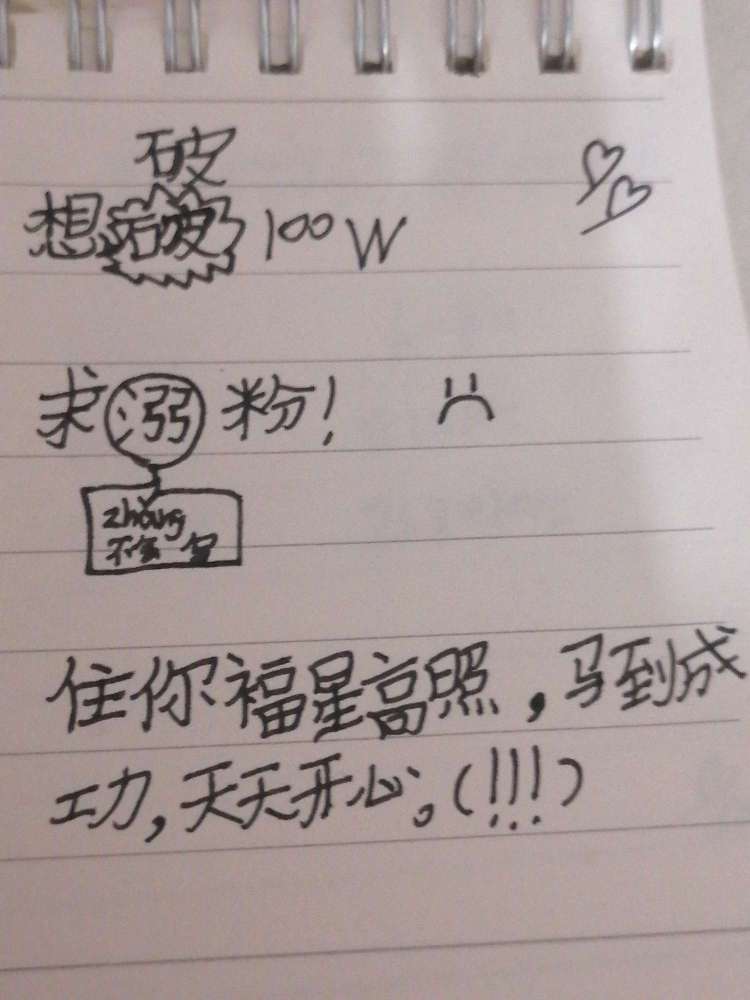 破
想 100W
求溺粉!
zhǎng
不会写
住你福星高照,马到成
功,天天开心。(!!!)